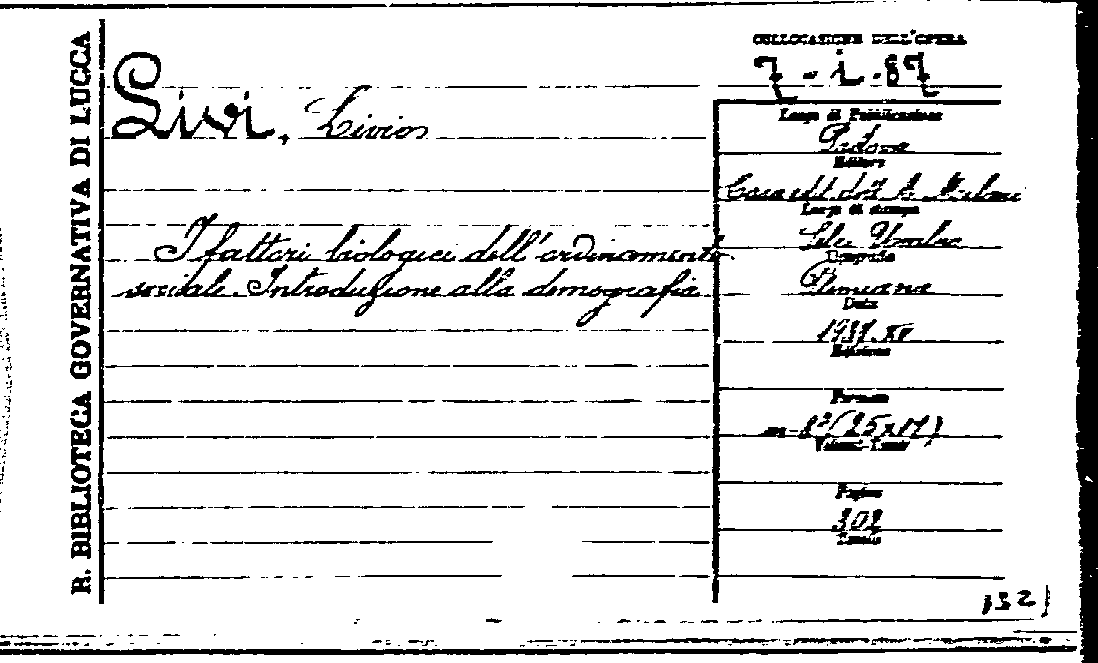 R. BIBLIOTECA GOVERNATIVA DI LUCCA
COLLOCAZIONE DELL'OPERA
7 - i - 87
Livi, Livio
I fattori biologici dell'ordinamento
sociale. Introduzione alla demografia
Luogo di Pubblicazione
Padova
Editore
Casa ed. dot. A. Milani
Luogo di stampa
Umbra
Tipografia
Data
Edizione
Formato
in-8°(25x17)
Volumi-Tomi
Pagine
302